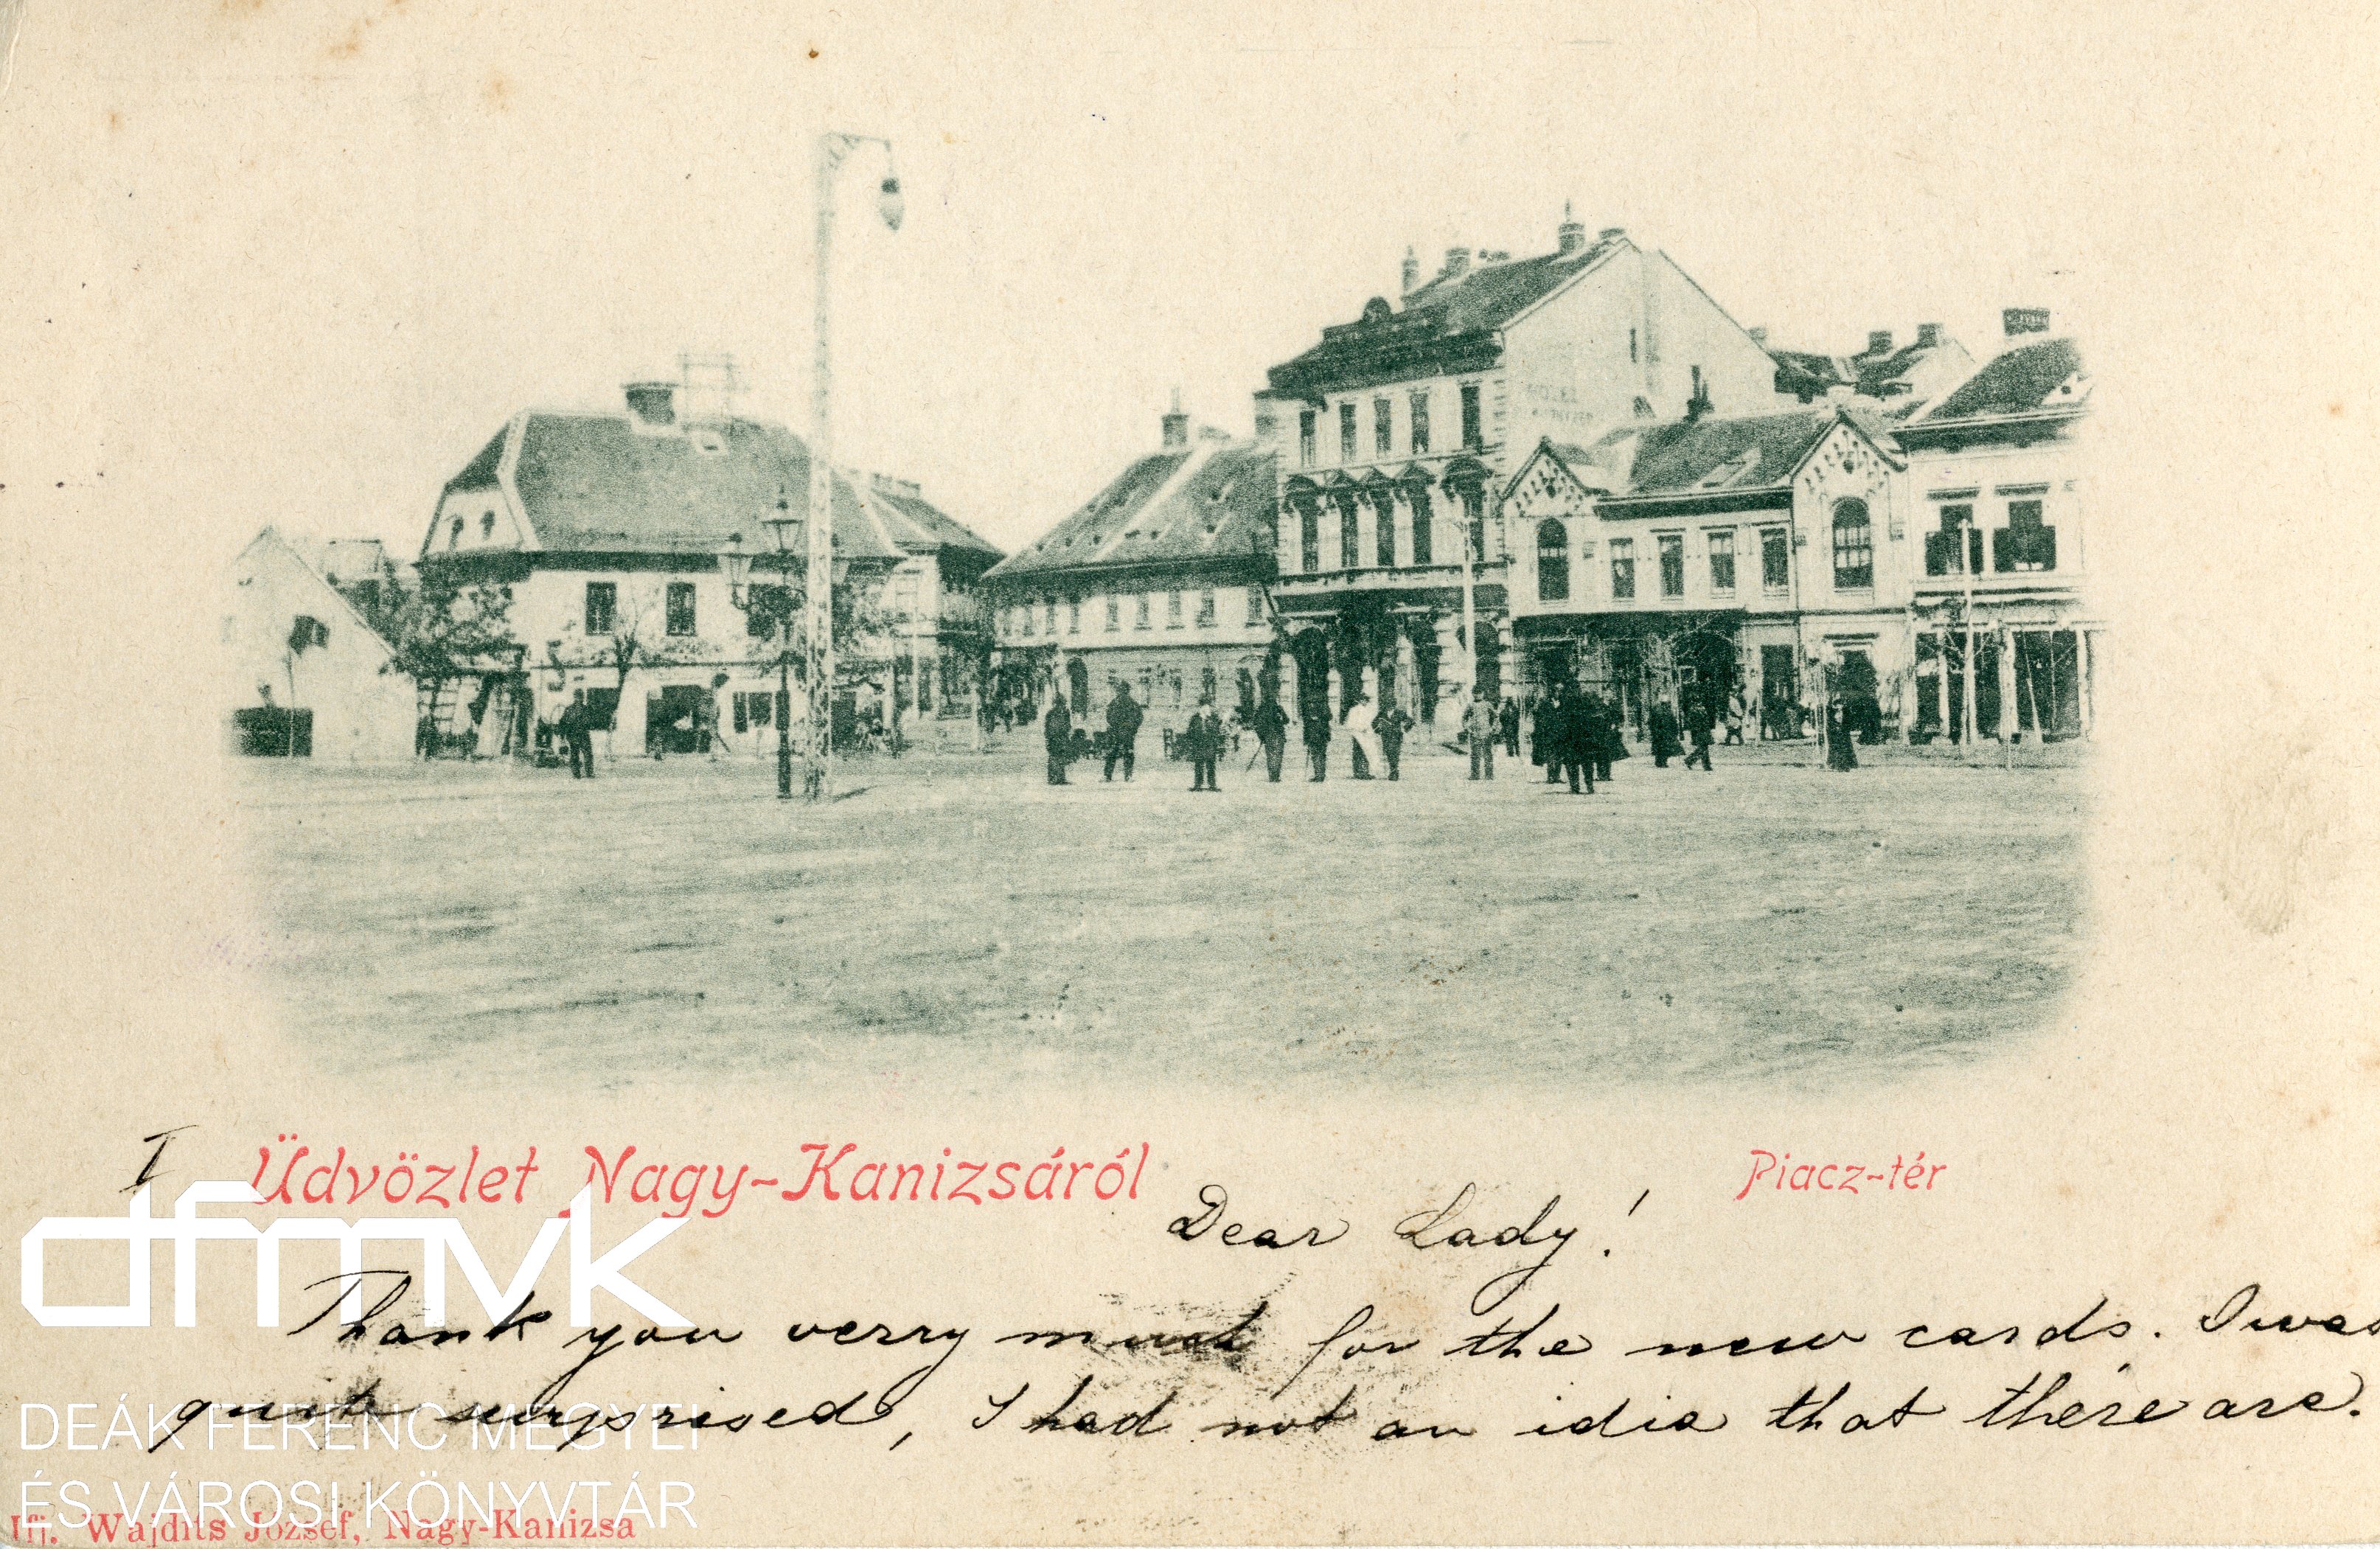 I
Üdvözlet Nagy-Kanizsáról
Piacz-tér
Dear Lady!
Thank you verry much for the new cards. I was
quite surprised, I had not an idia that there are.
dfmvk
DEÁK FERENC MEGYEI
ÉS VÁROSI KÖNYVTÁR
Ifj. Wajdits József, Nagy-Kanizsa